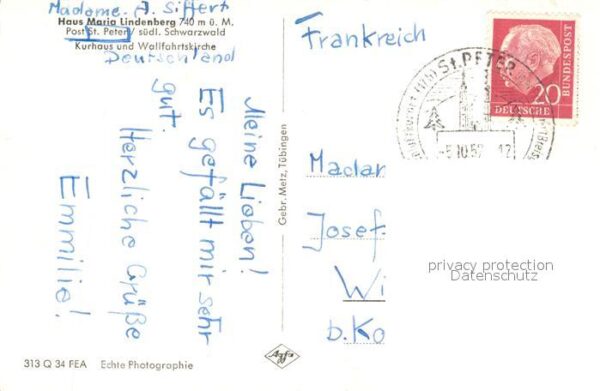 Madame J. Siffert
Haus Maria Lindenberg 740 m ü. M.
Post St. Peter / südl. Schwarzwald
Kurhaus und Wallfahrtskirche
Deutschland
Meine Lieben!
Es gefällt mir sehr
gut.
Herzliche Grüße
Emmilie!
313 Q 34 FEA Echte Photographie
Gebr. Metz, Tübingen
Agfa
Frankreich
St. PETER
20
DEUTSCHE
BUNDESPOST
Madam
Josef
Wi
b. Ko
privacy protection
Datenschutz